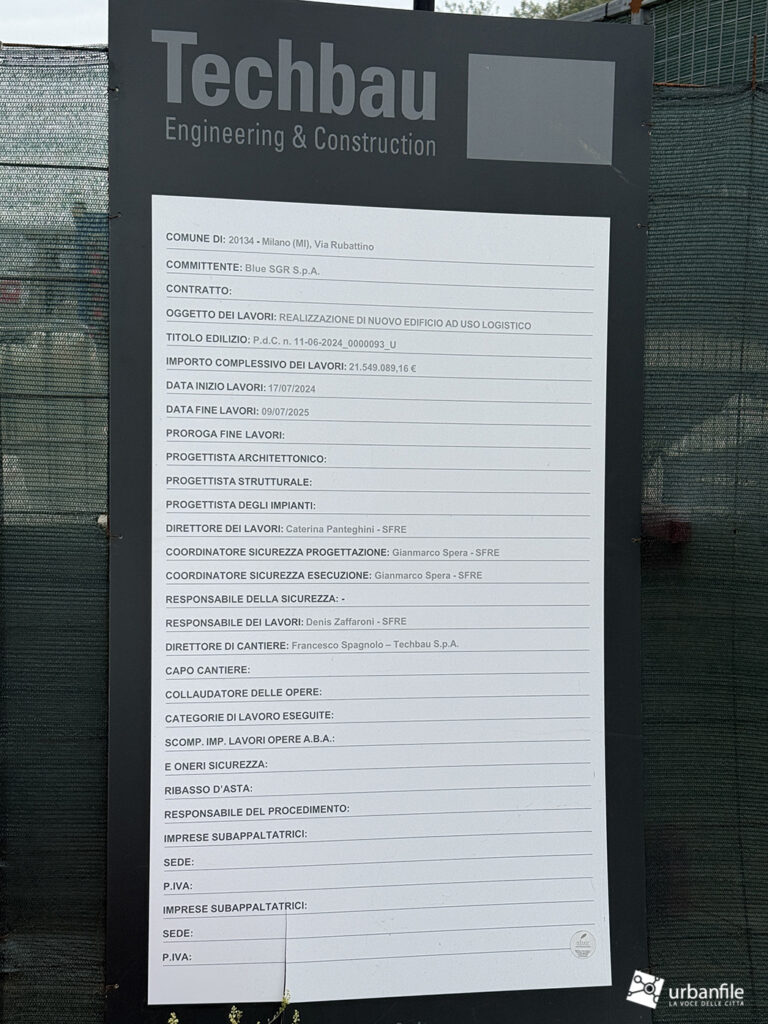 Techbau
Engineering & Construction
COMUNE DI: 20134 - Milano (MI), Via Rubattino
COMMITTENTE: Blue SGR S.p.A.
CONTRATTO:
OGGETTO DEI LAVORI: REALIZZAZIONE DI NUOVO EDIFICIO AD USO LOGISTICO
TITOLO EDILIZIO: P.d.C. n. 11-06-2024_0000093_U
IMPORTO COMPLESSIVO DEI LAVORI: 21.549.089,16 €
DATA INIZIO LAVORI: 17/07/2024
DATA FINE LAVORI: 09/07/2025
PROROGA FINE LAVORI:
PROGETTISTA ARCHITETTONICO:
PROGETTISTA STRUTTURALE:
PROGETTISTA DEGLI IMPIANTI:
DIRETTORE DEI LAVORI: Caterina Panteghini - SFRE
COORDINATORE SICUREZZA PROGETTAZIONE: Gianmarco Spera - SFRE
COORDINATORE SICUREZZA ESECUZIONE: Gianmarco Spera - SFRE
RESPONSABILE DELLA SICUREZZA: -
RESPONSABILE DEI LAVORI: Denis Zaffaroni - SFRE
DIRETTORE DI CANTIERE: Francesco Spagnolo – Techbau S.p.A.
CAPO CANTIERE:
COLLAUDATORE DELLE OPERE:
CATEGORIE DI LAVORO ESEGUITE:
SCOMP. IMP. LAVORI OPERE A.B.A.:
E ONERI SICUREZZA:
RIBASSO D'ASTA:
RESPONSABILE DEL PROCEDIMENTO:
IMPRESE SUBAPPALTATRICI:
SEDE:
P.IVA:
IMPRESE SUBAPPALTATRICI:
SEDE:
P.IVA:
urbanfile
LA VOCE DELLE CITTÀ